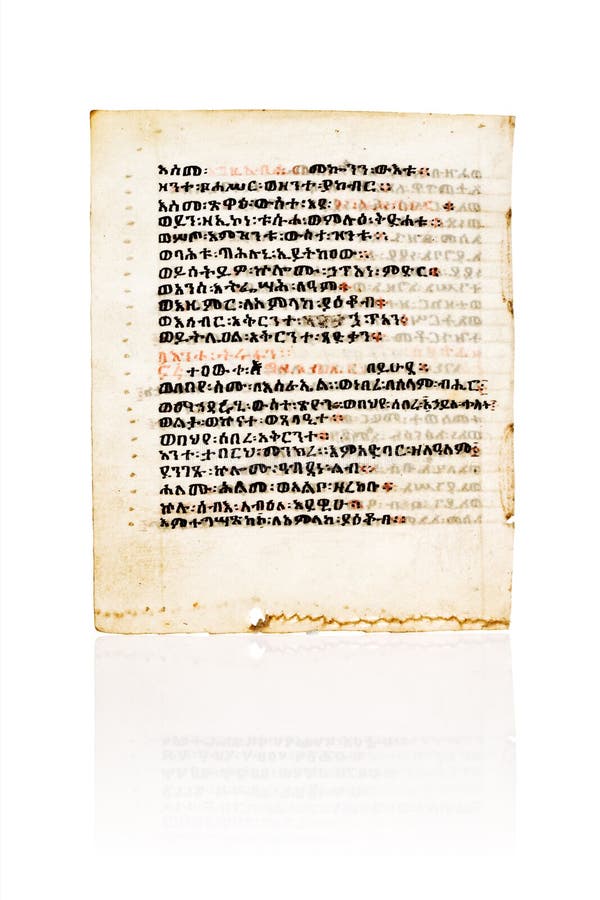 እስመ፡ መኰንን፡ውእቱ።
ዘንተ፡ያኀስር፡ወዘንተ፡ያከብር።
እስመ፡ጽዋዕ፡ውስተ፡እዴ፡
ወይን፡ዘኢኮነ፡ቱሱሐ፡ወምሉዕ፡ቅድሐቱ።
ወሦጠ፡እምዝንቱ፡ውስተ፡ዝንቱ።
ወባሕቱ፡ጣሕሉኒ፡ኢይትከዐው።
ወይሰትይዎ፡ኵሎሙ፡ኃጥአነ፡ምድር።
ወአንሰ፡እትፌሣሕ፡ለዓም።
ወእዜምር፡ለአምላከ፡ያዕቆብ።
ወእሰብር፡አቅርንተ፡
ወይትሌዐል፡አቅርንተ፡ጻድቃን።
ተዐውቀ፡ በይሁዳ።
ወዐበየ፡ስሙ፡ለእስራኤል። ወነበረ፡ለሰላም፡ብሔር።
ውስተ፡ጽዮን። ወበህየ፡ሰበረ፡ኃይለ፡ቀስት።
ወልታ፡ወኵናተ፡ወጸላዒተ።
ወበህየ፡ሰበረ፡አቅርንተ።
አንተ፡ታበርህ፡መንክረ። እምአድባር፡ዘለዓለም።
ደንገጹ፡ኵሎሙ፡ዓብዳነ፡ልብ።
ሐለሙ፡ሕልመ፡ወአልቦ፡ዘረከቡ።
ኵሉ፡ሰብእ፡ለብዕለ፡እደዊሁ።
እምተግሣጽከ፡አምላከ፡ያዕቆብ።